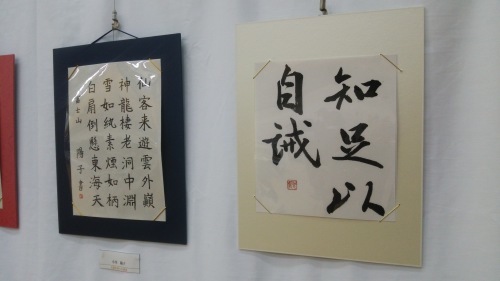 知足以
自誡
仙客来遊雲外巓
神龍棲老洞中淵
雪如紈素煙如柄
白扇倒懸東海天
富士山 陽子書